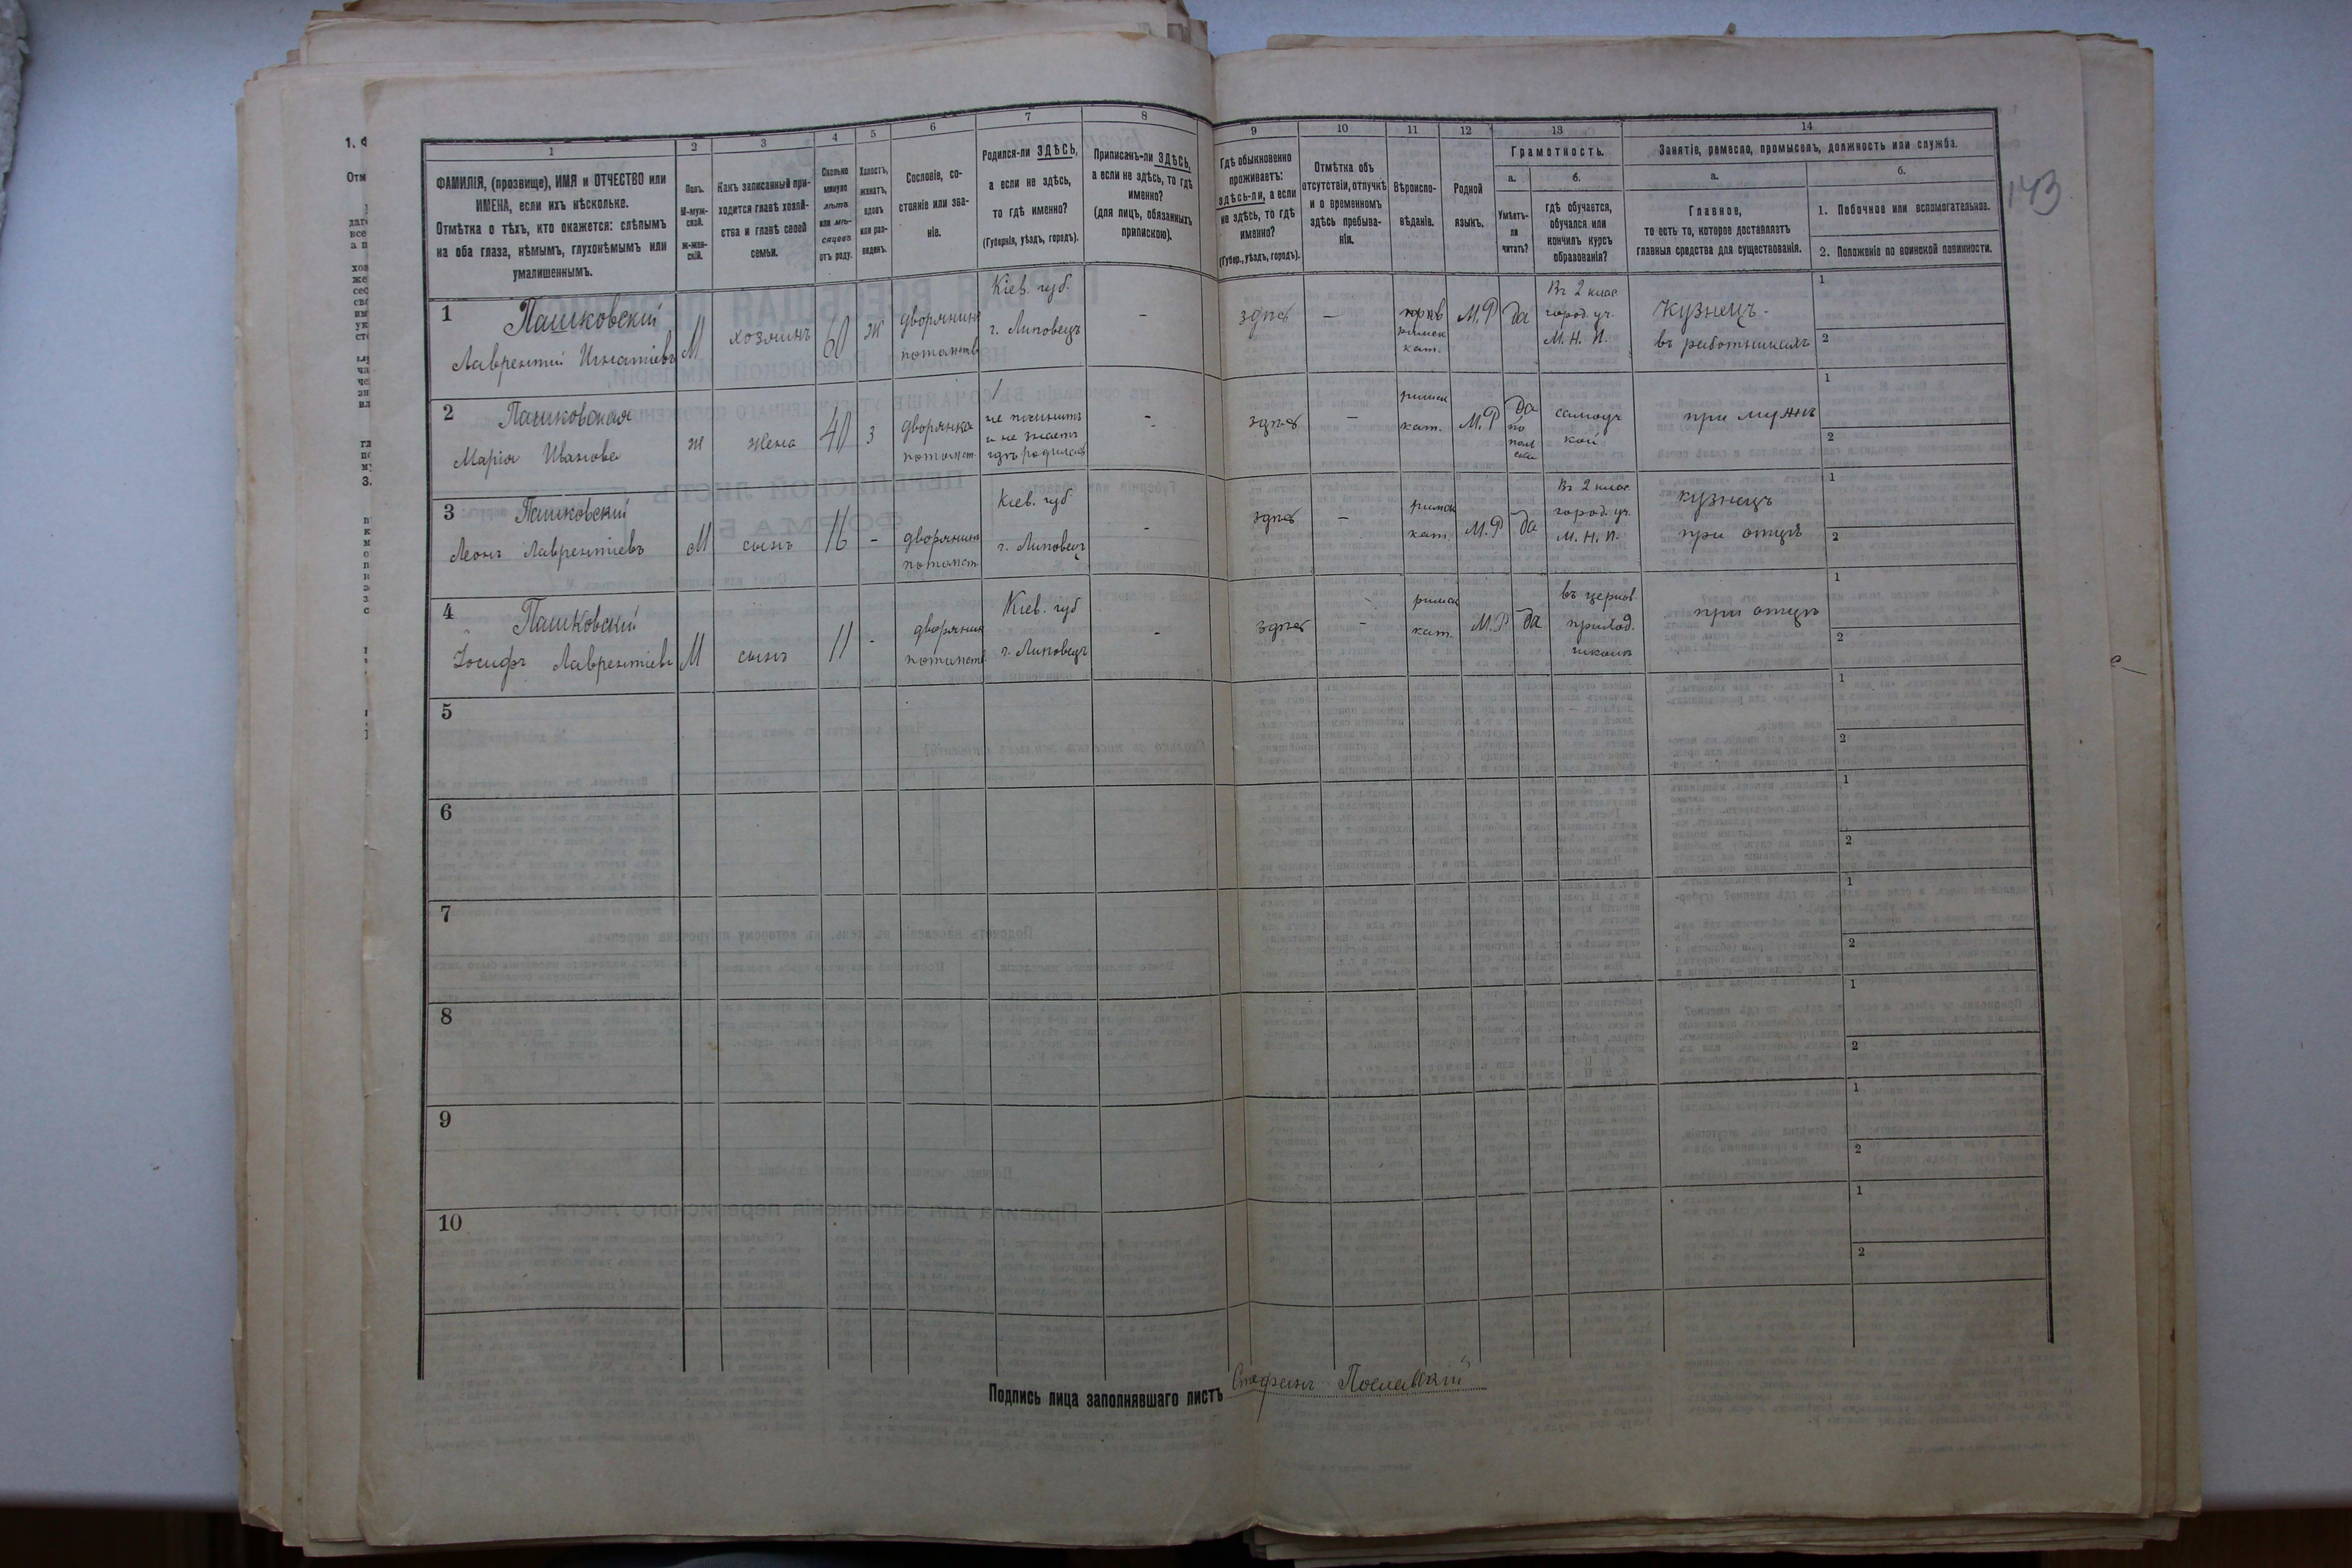 143
1
2
3
4
5
6
7
8
9
10
11
12
13
14
ФАМИЛІЯ, (прозвище), ИМЯ и ОТЧЕСТВО или
ИМЕНА, если ихъ нѣсколько.
Отмѣтка о тѣхъ, кто окажется: слѣпымъ
на оба глаза, нѣмымъ, глухонѣмымъ или
умалишеннымъ.
Полъ.
М-муж-
ской.
Ж-жен-
скій.
Какъ записанный при-
ходится главѣ хозяй-
ства и главѣ своей
семьи.
Сколько
минуло
лѣтъ
или мѣ-
сяцевъ
отъ роду.
Холостъ,
женатъ,
вдовъ
или раз-
веденъ.
Сословіе, со-
стояніе или зва-
ніе.
Родился-ли ЗДѢСЬ,
а если не здѣсь,
то гдѣ именно?
(Губернія, уѣздъ, городъ).
Приписанъ-ли ЗДѢСЬ,
а если не здѣсь, то гдѣ
именно?
(для лицъ, обязанныхъ
припискою).
Гдѣ обыкновенно
проживаетъ:
здѣсь-ли, а если
не здѣсь, то гдѣ
именно?
(Губер., уѣздъ, городъ).
Отмѣтка объ
отсутствіи, отпускѣ
и о временномъ
здѣсь пребыва-
ніи.
Вѣроиспо-
вѣданіе.
Родной
языкъ.
Грамотность.
а.
б.
Умѣетъ-
ли
читать?
гдѣ обучается,
обучался или
кончилъ курсъ
образованія?
Занятіе, ремесло, промыселъ, должность или служба.
а.
б.
Главное,
то есть то, которое доставляетъ
главныя средства для существованія.
1. Побочное или вспомогательное.
2. Положеніе по воинской повинности.
1
Пашковскій
Лаврентій Игнатіевъ
М
хозяинъ
60
ж
дворянинъ
потомств
Кіев. губ.
г. Липовецъ
-
здѣсь
-
римск
кат.
М.Р
да
Въ 2 клас
город. уч.
М. Н. П.
Кузнецъ -
въ работникахъ
1
2
2
Пашковская
Марія Иванова
ж
жена
40
з
дворянка
потомст
не помнитъ
и не знаетъ
гдѣ родилась
-
здѣсь
-
римск
кат.
М.Р
Да
по
поль
ски
самоуч
кой
при мужѣ
1
2
3
Пашковскій
Леонъ Лаврентіевъ
М
сынъ
16
-
дворянинъ
потомст
Кіев. губ
г. Липовец
-
здѣсь
-
римск
кат.
М.Р
да
Въ 2 клас
город. уч.
М. Н. П.
кузнецъ
при отцѣ
1
2
4
Пашковскій
Іосифъ Лаврентіевъ
М
сынъ
11
-
дворянин
потомств
Кіев. губ
г. Липовецъ
-
здѣсь
-
римск
кат.
М.Р
да
въ церков.
приход.
школѣ
при отцѣ
1
2
5
1
2
6
1
2
7
1
2
8
1
2
9
1
2
10
1
2
Подпись лица заполнявшаго листъ Стефанъ